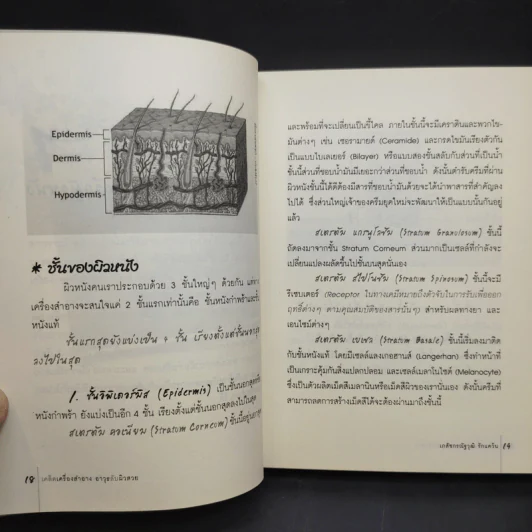 Epidermis
Dermis
Hypodermis
* ชั้นของผิวหนัง
ผิวหนังคนเราประกอบด้วย 3 ชั้นใหญ่ๆ ด้วยกัน แต่
เครื่องสำอางจะสนใจแค่ 2 ชั้นแรกเท่านั้นคือ ชั้นหนังกำพร้าและชั้น
หนังแท้
ชั้นแรกสุดยังแบ่งเป็น 4 ชั้น เรียงตั้งแต่ชั้นนอกสุด
ลงไปในสุด
1. ชั้นอิพิเดอร์มิส (Epidermis) เป็นชั้นนอกสุด
หนังกำพร้า ยังแบ่งเป็นอีก 4 ชั้น เรียงตั้งแต่ชั้นนอกสุดลงไปในสุด
สเตรตัม คอเนียม (Stratum Corneum) ชั้นนี้อยู่นอก
18 เคล็ดเครื่องสำอาง อาวุธลับผิวสวย
และพร้อมที่จะเปลี่ยนเป็นขี้ไคล ภายในชั้นนี้จะมีเคราตินและพวกไข-
มันต่างๆ เช่น เซอรามายด์ (Ceramide) และกรดไขมันเรียงตัวกัน
เป็นแบบไบเลเยอร์ (Bilayer) หรือแบบสองชั้นสลับกับส่วนที่เป็นน้ำ
ชั้นนี้ส่วนที่ชอบน้ำมันมีเยอะกว่าส่วนที่ชอบน้ำ ดังนั้นตำรับครีมที่ผ่าน
ผิวหนังชั้นนี้ได้ดีต้องมีสารที่ชอบน้ำมันด้วยจะได้นำพาสารที่สำคัญลง
ไปได้ ซึ่งส่วนใหญ่เจ้าของครีมยุคใหม่จะพัฒนาให้เป็นแบบนั้นกันอยู่
แล้ว
สเตรตัม แกรนูโลซัม (Stratum Granulosum) ชั้นนี้
ถัดลงมาจากชั้น Stratum Corneum ส่วนมากเป็นเซลล์ที่กำลังจะ
เปลี่ยนแปลงผลัดขึ้นไปชั้นบนสุดนั่นเอง
สเตรตัม สไปโนซัม (Stratum Spinosum) ชั้นนี้จะมี
รีเซบเตอร์ (Receptor ในทางเคมีหมายถึงตัวจับในการรับเพื่อออก
ฤทธิ์ต่างๆ ตามคุณสมบัติของสารนั้นๆ) สำหรับผลทางยา และ
เอนไซม์ต่างๆ
สเตรตัม เบเซล (Stratum Basale) ชั้นนี้เริ่มลงมาติด
กับชั้นหนังแท้ โดยมีเซลล์แลงเกอฮานส์ (Langerhan) ซึ่งทำหน้าที่
เป็นเกราะคุ้มกันสิ่งแปลกปลอม และเซลล์เมลาโนไซต์ (Melanocyte)
ซึ่งเป็นตัวผลิตเม็ดสีเมลานินหรือเม็ดสีผิวของเรานั่นเอง ดังนั้นครีมที่
สามารถลดการสร้างเม็ดสีได้จะต้องผ่านมาถึงชั้นนี้
เภสัชกรณัฐวุฒิ รักแคว้น 19